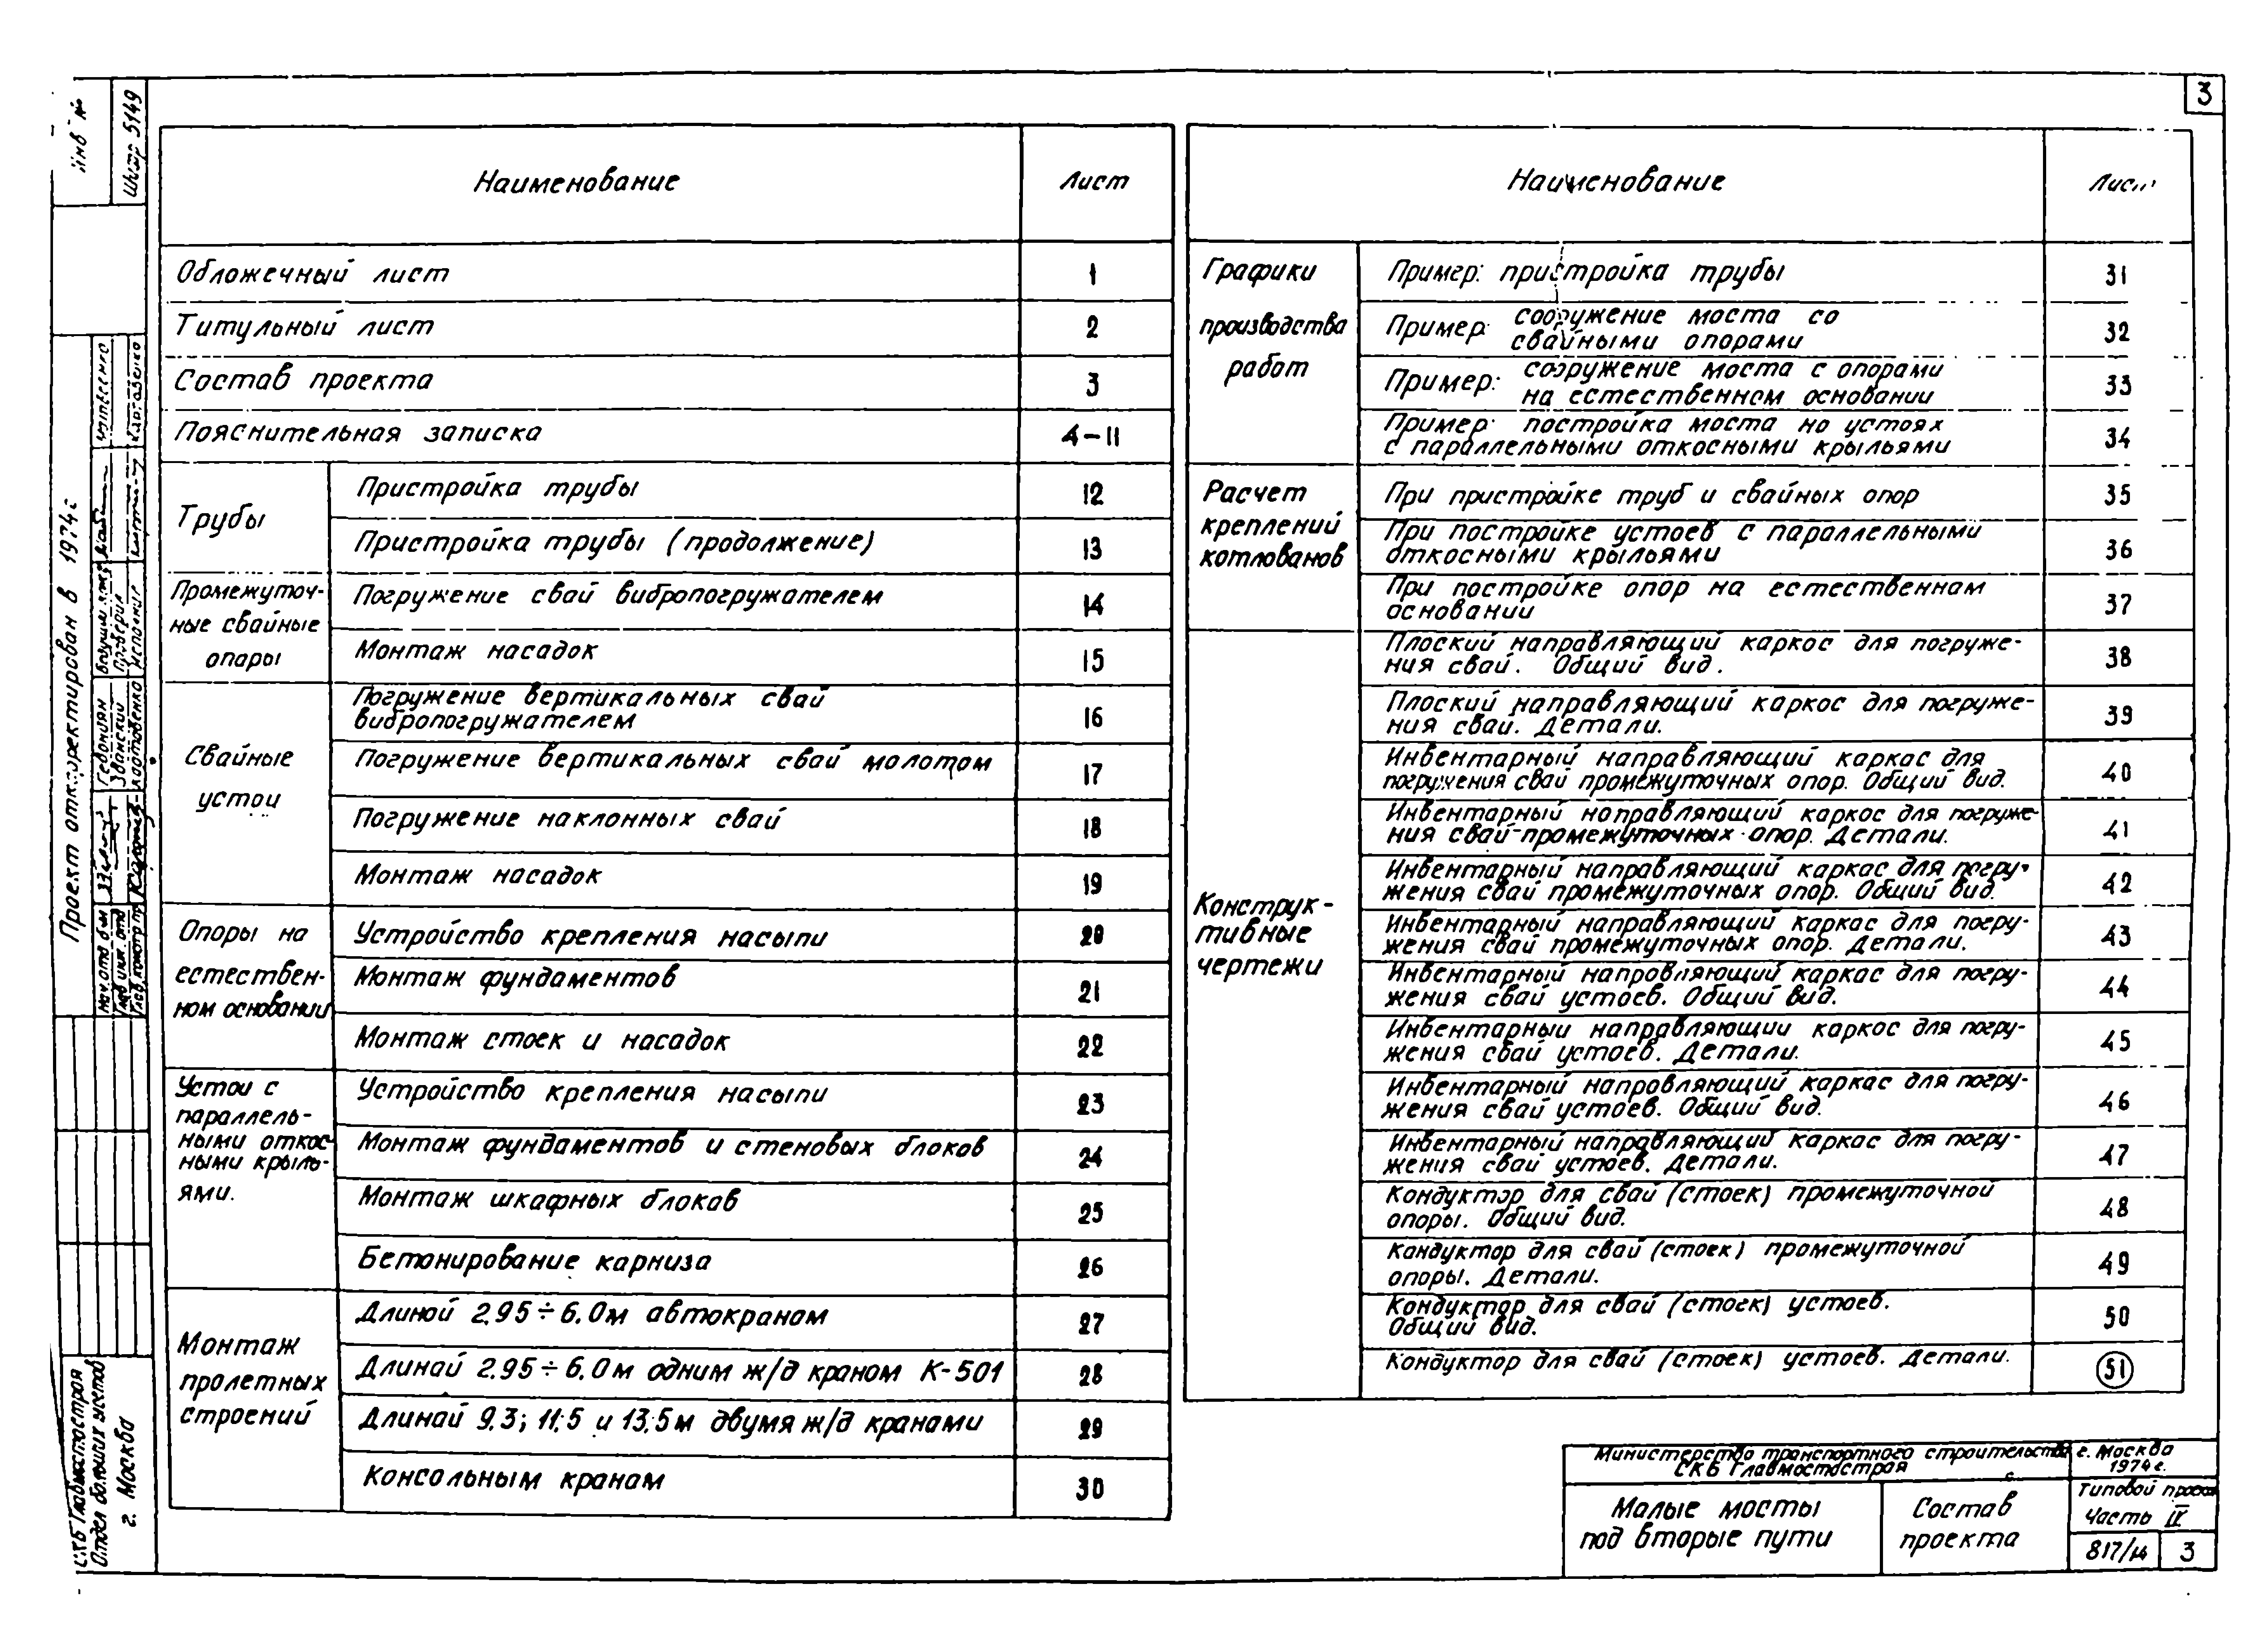 3
Инв №
Шифр 5149
Проект откорректирован в 1974г
СКБ Главмостостроя
Отдел больших мостов
г. Москва
Наименование Лист
Обложечный лист 1
Титульный лист 2
Состав проекта 3
Пояснительная записка 4-11
Трубы
Пристройка трубы 12
Пристройка трубы (продолжение) 13
Промежуточ-
ные свайные
опоры
Погружение свай вибропогружателем 14
Монтаж насадок 15
Свайные
устои
Погружение вертикальных свай
вибропогружателем 16
Погружение вертикальных свай молотом 17
Погружение наклонных свай 18
Монтаж насадок 19
Опоры на
естествен-
ном основании
Устройство крепления насыпи 20
Монтаж фундаментов 21
Монтаж стоек и насадок 22
Устои с
параллель-
ными откос-
ными крыль-
ями.
Устройство крепления насыпи 23
Монтаж фундаментов и стеновых блоков 24
Монтаж шкафных блоков 25
Бетонирование карниза 26
Монтаж
пролетных
строений
Длиной 2.95÷6.0м автокраном 27
Длиной 2.95÷6.0м одним ж/д краном К-501 28
Длиной 9.3; 11.5 и 13.5м двумя ж/д кранами 29
Консольным краном 30
Наименование Лист
Графики
производства
работ
Пример: пристройка трубы 31
Пример: сооружение моста со
свайными опорами 32
Пример: сооружение моста с опорами
на естественном основании 33
Пример: постройка моста на устоях
с параллельными откосными крыльями 34
Расчет
креплений
котлованов
При пристройке труб и свайных опор 35
При постройке устоев с параллельными
откосными крыльями 36
При постройке опор на естественном
основании 37
Конструк-
тивные
чертежи
Плоский направляющий каркас для погруже-
ния свай. Общий вид. 38
Плоский направляющий каркас для погруже-
ния свай. Детали. 39
Инвентарный направляющий каркас для
погружения свай промежуточных опор. Общий вид. 40
Инвентарный направляющий каркас для погруже-
ния свай промежуточных опор. Детали. 41
Инвентарный направляющий каркас для погру-
жения свай промежуточных опор. Общий вид. 42
Инвентарный направляющий каркас для погру-
жения свай промежуточных опор. Детали. 43
Инвентарный направляющий каркас для погру-
жения свай устоев. Общий вид. 44
Инвентарный направляющий каркас для погру-
жения свай устоев. Детали. 45
Инвентарный направляющий каркас для погру-
жения свай устоев. Общий вид. 46
Инвентарный направляющий каркас для погру-
жения свай устоев. Детали. 47
Кондуктор для свай (стоек) промежуточной
опоры. Общий вид. 48
Кондуктор для свай (стоек) промежуточной
опоры. Детали. 49
Кондуктор для свай (стоек) устоев.
Общий вид. 50
Кондуктор для свай (стоек) устоев. Детали. 51
Министерство транспортного строительства
СКБ Главмостостроя
г. Москва
1974г.
Малые мосты
под вторые пути
Состав
проекта
Типовой проект
Часть IX
817/14 3